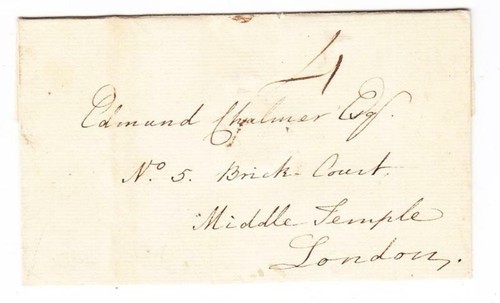 4
Edmund Chalmer Esqr.
No. 5. Brick Court.
Middle Temple
London.